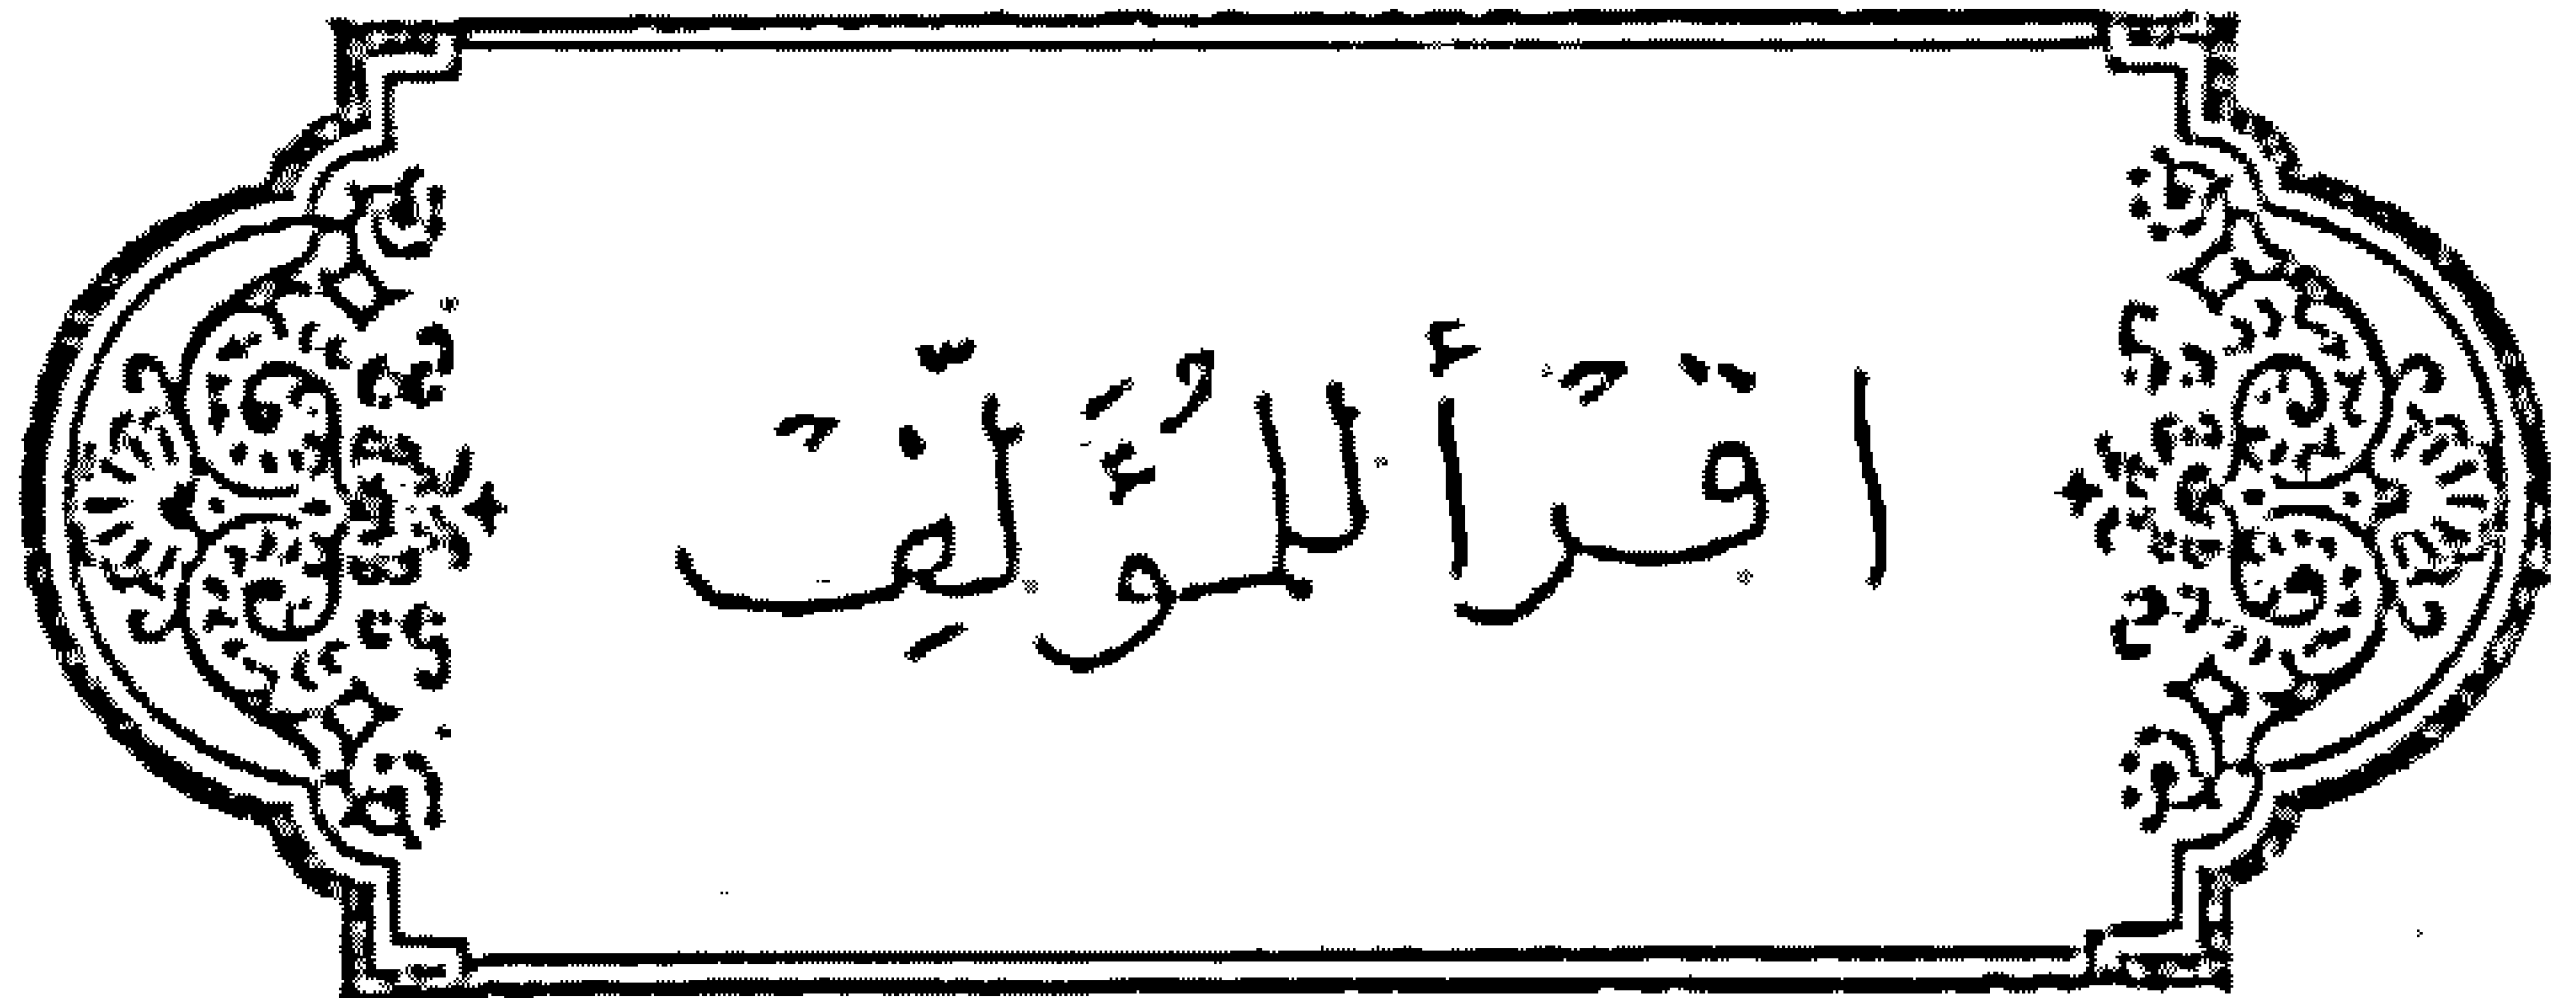 اقْرَأْ للمُؤَلِّفْ